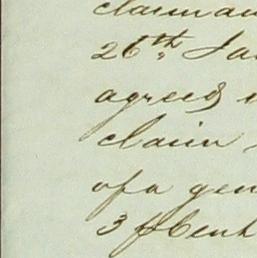 claiman
26th Ja
agreed
claim
of a gen
3 p Cent